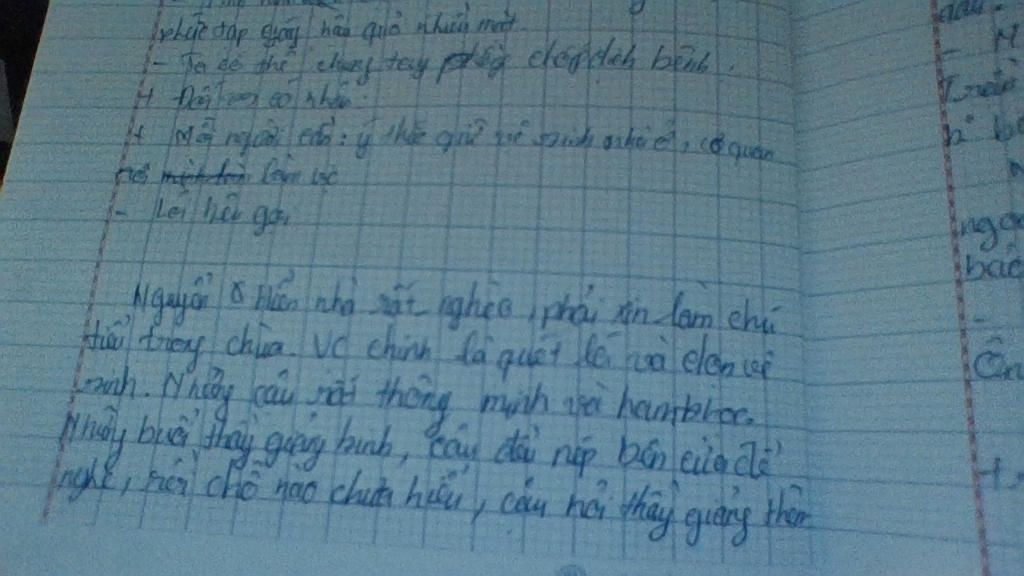 phức tạp gây hậu quả nhiều mặt
- Ta có thể chung tay phòng chống dịch bệnh.
+ Đối với cá nhân:
+ Mỗi người cần: ý thức giữ vệ sinh nhà ở, cơ quan
nơi làm việc
- Lời kêu gọi
Nguyễn Hiền nhà rất nghèo, phải xin làm chú
tiểu trong chùa. VC chính là quét lá và dọn vệ
sinh. Nhưng cậu rất thông minh và ham học.
Những buổi thầy giảng kinh, cậu đều nép bên cửa để
nghe, rồi chỗ nào chưa hiểu, cậu hỏi thầy giảng thêm
ngo
bác